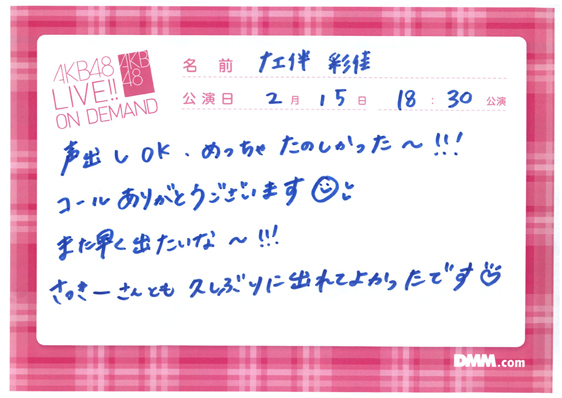 AKB48
LIVE!!
ON DEMAND
AKB
48
名前 左伴 彩佳
公演日 2月15日 18:30公演
声出しOK、めっちゃたのしかった〜!!!
コールありがとうございます
また早く出たいな〜!!!
さかきーさんとも久しぶりに出れてよかったです
DMM.com